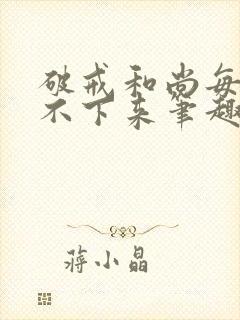 破戒和尚每
不下来笔趣
蒋小晶